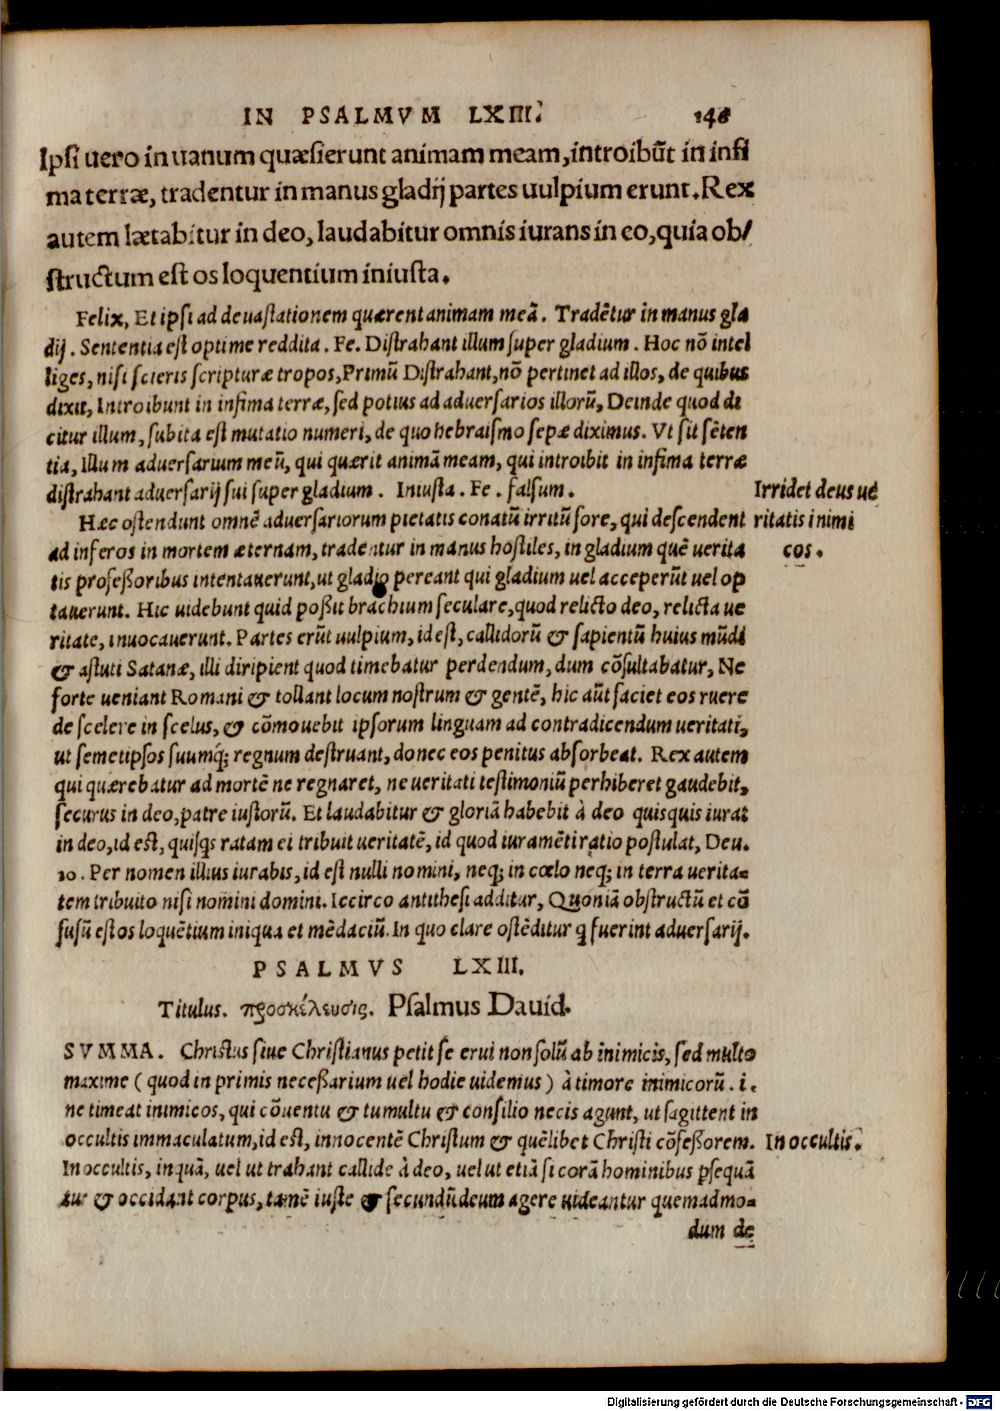 IN PSALMVM LXIII. 148
Ipsi uero in uanum quæsierunt animam meam, introibūt in infi
ma terræ, tradentur in manus gladij partes uulpium erunt. Rex
autem lætabitur in deo, laudabitur omnis iurans in eo, quia ob/
structum est os loquentium iniusta.
Felix, Et ipsi ad deuastationem quærent animam meā. Tradētur in manus gla
dij. Sententia est optime reddita. Fe. Distrahant illum super gladium. Hoc nō intel
liges, nisi scieris scripturæ tropos, Primū Distrahant, nō pertinet ad illos, de quibus
dixit, Introibunt in infima terræ, sed potius ad aduersarios illorū, Deinde quod di
citur illum, subita est mutatio numeri, de quo hebraismo sepæ diximus. Vt sit sēten
tia, Illum aduersarium meū, qui quærit animā meam, qui introibit in infima terræ
distrahant aduersarij sui super gladium. Iniusta. Fe. falsum.
Irridet deus ue
ritatis inimi
cos.
Hæc ostendunt omnē aduersariorum pietatis conatū irritū fore, qui descendent
ad inferos in mortem æternam, tradentur in manus hostiles, in gladium quē uerita
tis profeßoribus intentauerunt, ut gladio pereant qui gladium uel acceperūt uel op
tauerunt. Hic uidebunt quid poßit brachium seculare, quod relicto deo, relicta ue
ritate, inuocauerunt. Partes erūt uulpium, id est, callidorū & sapientū huius mūdi
& astuti Satanæ, illi diripient quod timebatur perdendum, dum cōsultabatur, Ne
forte ueniant Romani & tollant locum nostrum & gentē, hic aūt faciet eos ruere
de scelere in scelus, & cōmouebit ipsorum linguam ad contradicendum ueritati,
ut semetipsos suumq; regnum destruant, donec eos penitus absorbeat. Rex autem
qui quærebatur ad mortē ne regnaret, ne ueritati testimoniū perhiberet gaudebit,
securus in deo, patre iustorū. Et laudabitur & gloriā habebit à deo quisquis iurat
in deo, id est, quisqs ratam ei tribuit ueritatē, id quod iuramēti ratio postulat, Deu.
10. Per nomen illius iurabis, id est nulli nomini, neq; in cœlo neq; in terra uerita-
tem tribuito nisi nomini domini. Iccirco antithesi additur, Quoniā obstructū et cō
fusū est os loquētium iniqua et mēdaciū. In quo clare ostēditur q fuerint aduersarij.
PSALMVS LXIII.
Titulus. προσκέλευσις. Psalmus Dauid.
SVMMA. Christus siue Christianus petit se erui non solū ab inimicis, sed multo
maxime ( quod in primis neceßarium uel hodie uidemus ) à timore inimicorū. i.
ne timeat inimicos, qui cōuentu & tumultu & consilio necis agunt, ut sagittent in
occultis immaculatum, id est, innocentē Christum & quēlibet Christi cōfeßorem.
In occultis.
In occultis, inquā, uel ut trahant callide à deo, uel ut etiā si corā hominibus psequā
tur & occidant corpus, tamē iuste & secundū deum agere uideantur quemadmo-
dum de
Digitalisierung gefördert durch die Deutsche Forschungsgemeinschaft - DFG